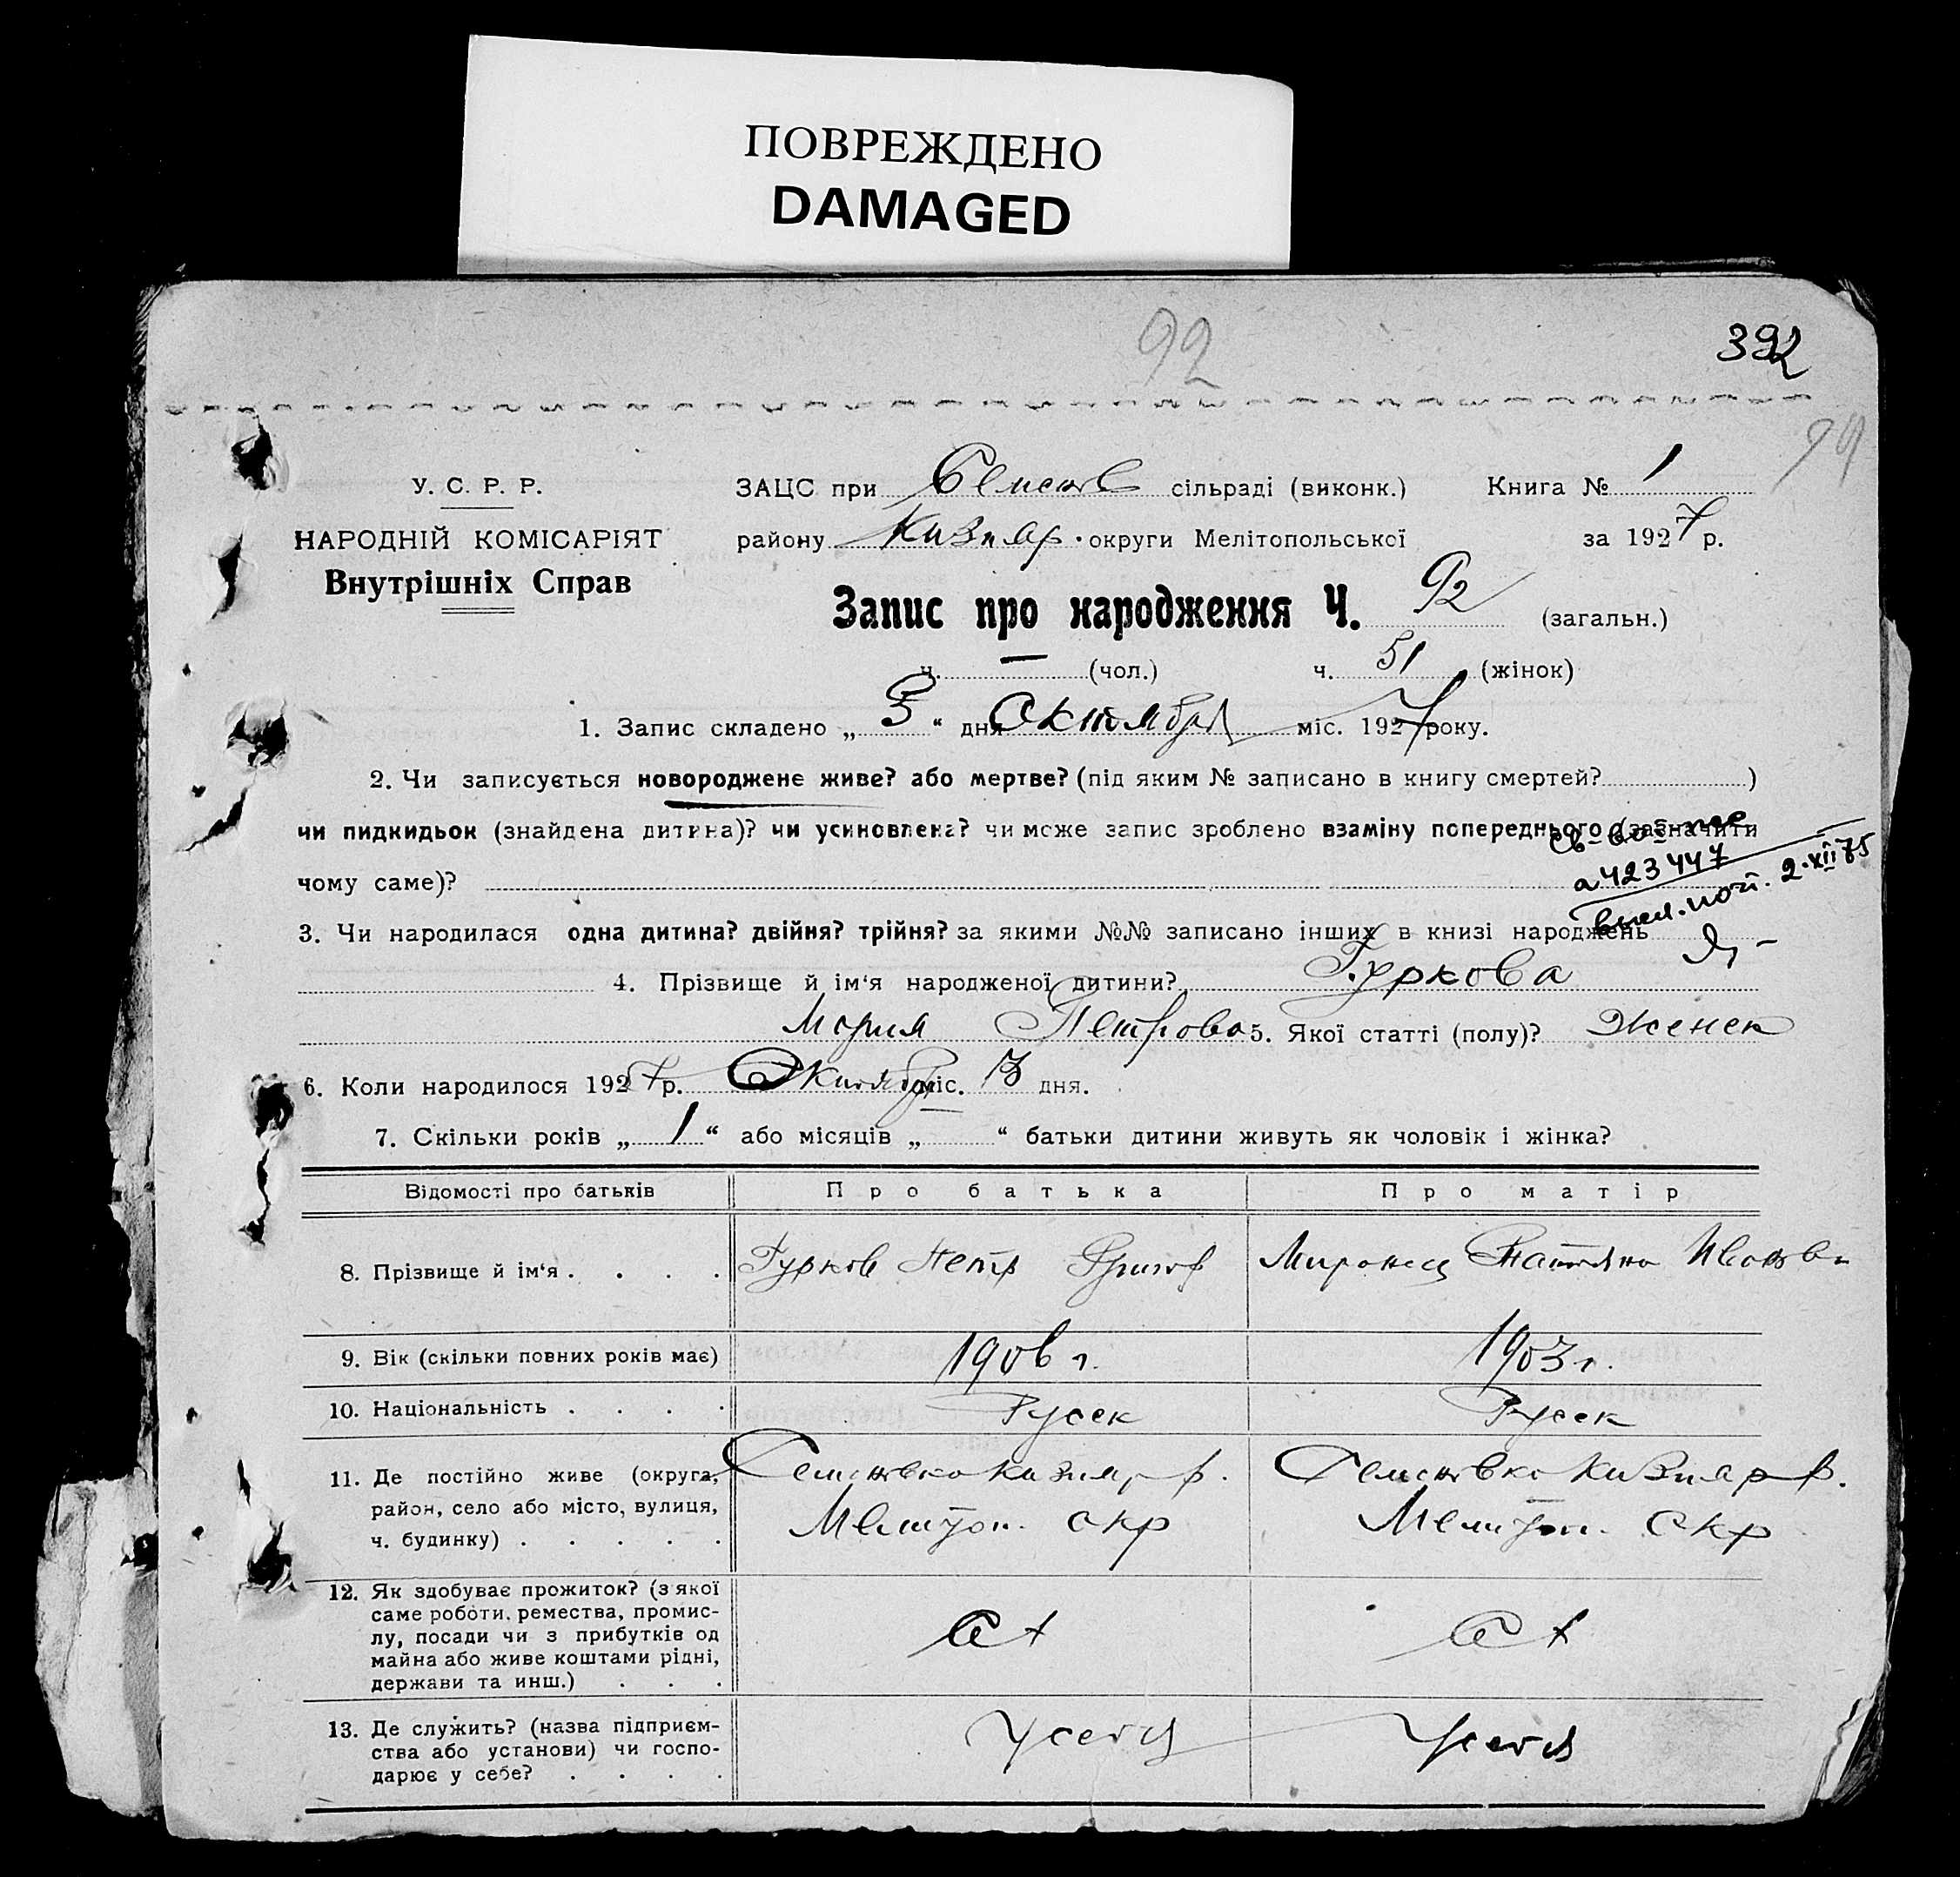 ПОВРЕЖДЕНО
DAMAGED
92
392
99
У. С. Р. Р.
НАРОДНІЙ КОМІСАРІЯТ
Внутрішніх Справ
ЗАЦС при Семенов сільраді (виконк.) Книга № 1
району Кизияр. округи Мелітопольської за 1927 р.
Запис про народження Ч. 92 (загальн.)
ч. — (чол.) ч. 51 (жінок)
1. Запис складено „ “ дня Октября міс. 1927 року.
2. Чи записується новороджене живе? або мертве? (під яким № записано в книгу смертей? )
чи пидкидьок (знайдена дитина)? чи усиновлена? чи може запис зроблено взаміну попереднього (зазначити
чому саме)?
а 423447
2.XII 75
3. Чи народилася одна дитина? двійня? трійня? за якими №№ записано інших в книзі народжень
4. Прізвище й ім‘я народженої дитини? Гуркова
Мария Петрова 5. Якої статті (полу)? Женск
6. Коли народилося 1927 р. Октябр міс. 3 дня.
7. Скільки років „ 1 “ або місяців „ “ батьки дитини живуть як чоловік і жінка?
Відомості про батьків Про батька Про матір
8. Прізвище й ім‘я . . . . Гурков Петр Григор Миронец Татьяна Иванов
9. Вік (скільки повних років має) 1906 г. 1903 г.
10. Національність . . . . Русск Русск
11. Де постійно живе (округа, Семеновка Кизияр р. Семеновка Кизияр р.
район, село або місто, вулиця, Мелитоп. окр Мелитоп. окр
ч. будинку) . . . . .
12. Як здобуває прожиток? (з якої
саме роботи, ремества, промис-
лу, посади чи з прибутків од
майна або живе коштами рідні,
держави та инш.) . . .
13. Де служить? (назва підприєм-
ства або установи) чи госпо- У себя У себя
дарює у себе? . . . .